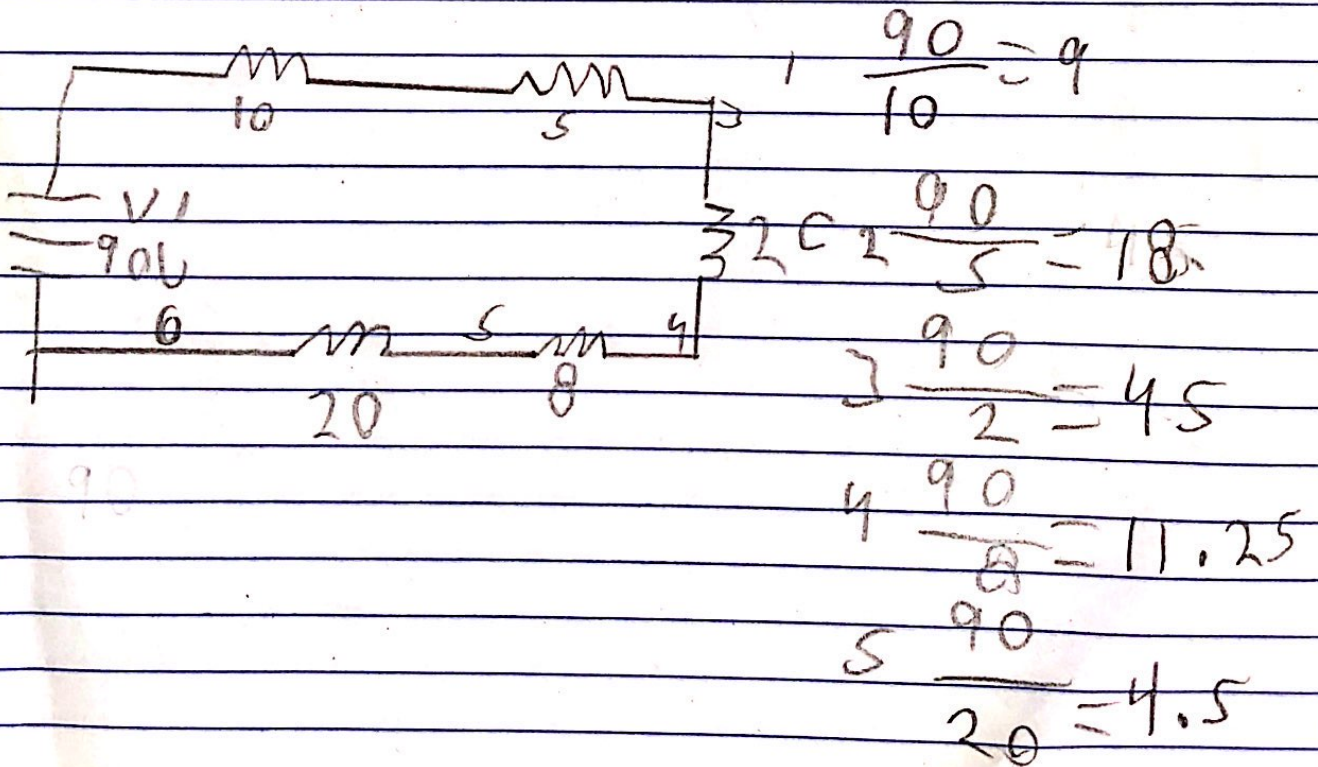 10 5 3
V1
90V
32 C
6 5 4
20 8
1 90/10 = 9
2 90/5 = 18
3 90/2 = 45
4 90/8 = 11.25
5 90/20 = 4.5
90